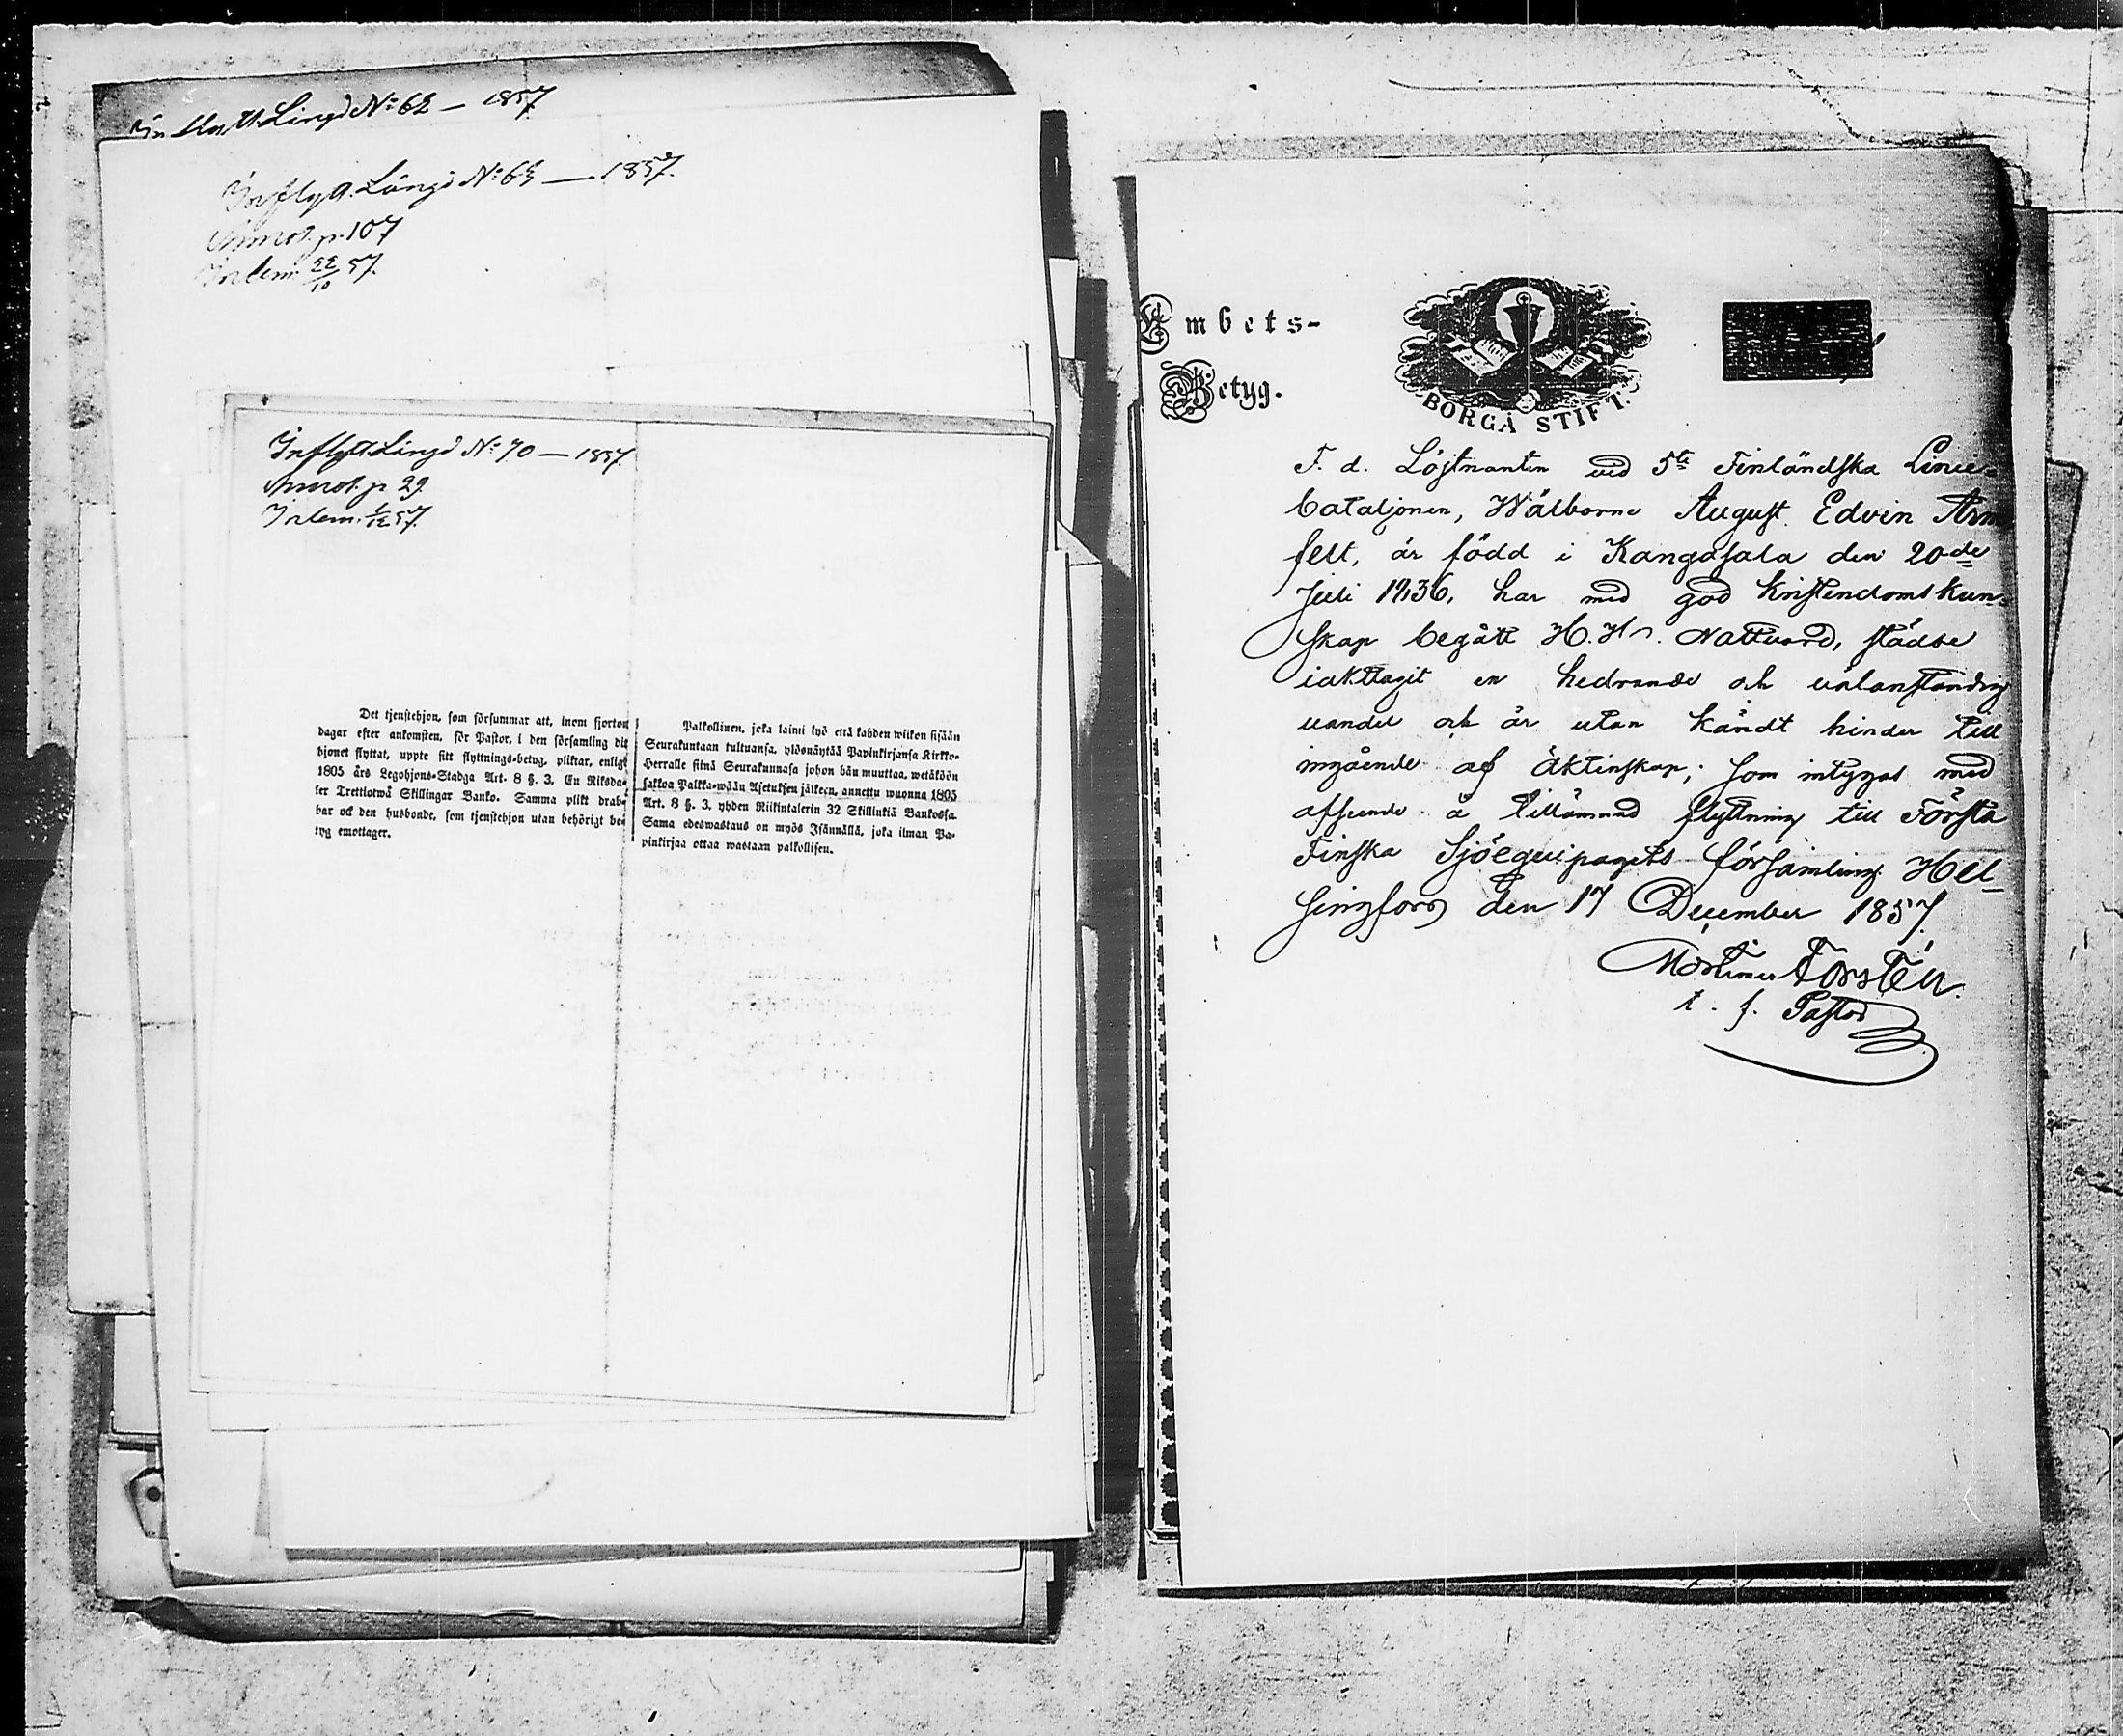 Inflytt. Längd No 62 — 1857
Inflytt. Längd No 63 — 1857.
Annot. p. 107
Inlem. 22/10 57.
Inflytt. Längd No 70 — 1857.
Annot. p 29.
Inlem. 57.
Det tjenstehjon, som försummar att, inom fjorton
dagar efter ankomsten, för Pastor, i den församling dit
hjonet flyttat, uppte sitt flyttnings-betyg, pliktar, enligt
1805 års Legohjons-Stadga Art. 8 §. 3. En Riksda-
ler Trettiotwå Skillingar Banko. Samma plikt drab-
bar ock den husbonde, som tjenstehjon utan behörigt be-
tyg emottager.
Palkollinen, joka laimi lyö että kahden wiikon sisään
Seurakuntaan tultuansa, ylösnäytää Papinkirjansa Kirkko-
Herralle siinä Seurakunnasa johon hän muuttaa, wetäköön
sakkoa Palkka-wään Asetuksen jälkeen, annettu wuonna 1805
Art. 8 §. 3. yhden Riikintalerin 32 Skillinkiä Bankossa.
Sama edeswastaus on myös Isännällä, joka ilman Pa-
pinkirjaa ottaa wastaan palkollisen.
Embets-
Betyg.
BORGÅ STIFT.
F. d. Löjtnanten wid 5te Finländska Linie-
bataljonen, Wälborne August Edvin Arm
felt, är född i Kangasala den 20de
Juli 1836, har med god kristendomskun-
skap begått H. H. Nattvard, städse
iakttagit en hedrande och välanständig
vandel och är utan kändt hinder till
ingående af äktenskap; som intygas med
afseende å tillämnad flyttning till Första
Finska Sjöequipagets församling. Hel-
singfors den 17 December 1857.
Mortimer Forstén.
t. f. Pastor